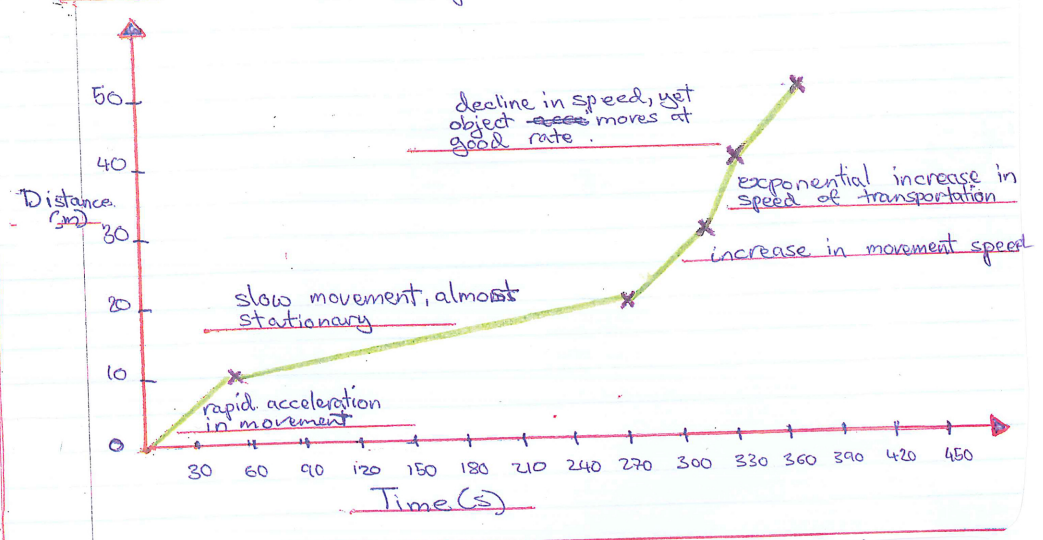 50
decline in speed, yet
object acce moves at
good rate.
40
exponential increase in
speed of transportation
Distance
(m)
30
increase in movement speed
slow movement, almost
stationary
20
10
rapid acceleration
in movement
0
30 60 90 120 150 180 210 240 270 300 330 360 390 420 450
Time (s)